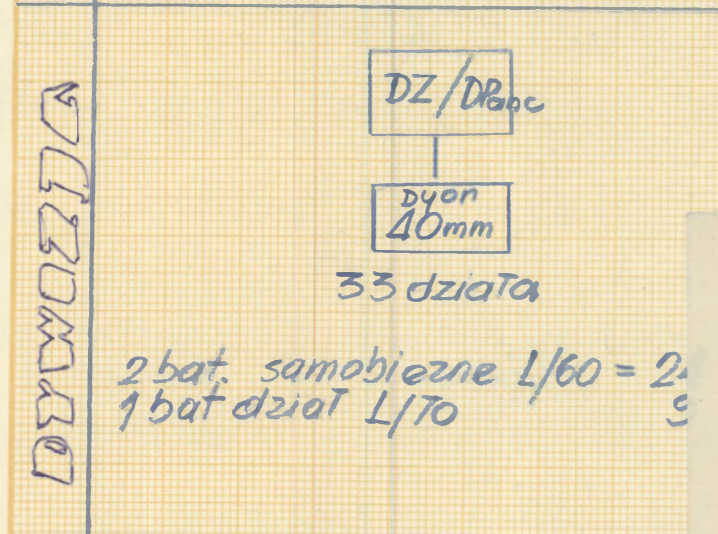 DYWIZJA
DZ/DPanc
Dyon
40mm
33 działa
2 bat. samobieżne L/60 = 24
1 bat dział L/70 9